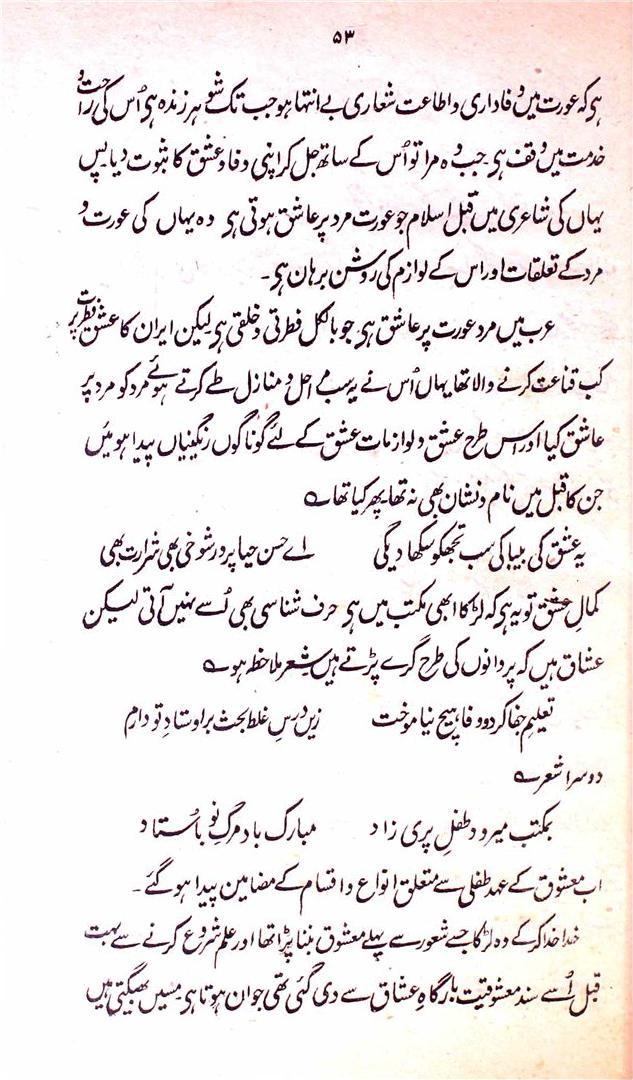 ۵۳
ہی کہ عورت میں وفاداری و اطاعت شعاری بے انتہا ہو جب تک شوہر زندہ ہی اُس کی راحت و
خدمت میں وقف ہی۔ جب وہ مرا تو اُس کے ساتھ جل کر اپنی وفا و عشق کا ثبوت دیا۔ پس
یہاں کی شاعری میں قبل اسلام جو عورت مرد پر عاشق ہوتی ہی وہ یہاں کی عورت و
مرد کے تعلقات اور اس کے لوازم کی روشن برہان ہی۔
عرب میں مرد عورت پر عاشق ہی جو بالکل فطرتی و خلقی ہی لیکن ایران کا عشق فطرت پر
کب قناعت کرنے والا تھا یہاں اُس نے یہ سب مراحل و منازل طے کرتے ہوئے مرد کو مرد پر
عاشق کیا اور اس طرح عشق و لوازمات عشق کے لئے گوناگوں رنگینیاں پیدا ہوئیں
جن کا قبل میں نام و نشان بھی نہ تھا۔ پھر کیا تھا ؎
یہ عشق کی بیباکی سب تجھکو سکھا دیگی اے حسن حیا پرور شوخی بھی شرارت بھی
کمالِ عشق تو یہ ہی کہ لڑکا ابھی مکتب میں ہی حرف شناسی بھی اُسے نہیں آتی لیکن
عشاق ہیں کہ پروانوں کی طرح گرے پڑتے ہیں شعر ملاحظہ ہو ؎
تعلیمِ جفا کرد و وفا ہیچ نیاموخت زیں درسِ غلط بحث بر اوستادِ تو دارم
دوسرا شعر ؎
بمکتب میرود طفلِ پری زاد مبارک باد مرگِ نو باُستاد
اب معشوق کے عہد طفلی سے متعلق انواع و اقسام کے مضامین پیدا ہو گئے۔
خدا خدا کرکے وہ لڑکا جسے شعور سے پہلے معشوق بننا پڑا تھا اور علم شروع کرنے سے بہت
قبل اُسے سند معشوقیت بارگاہِ عشاق سے دی گئی تھی جوان ہوتا ہی مسیں بھیگتی ہیں